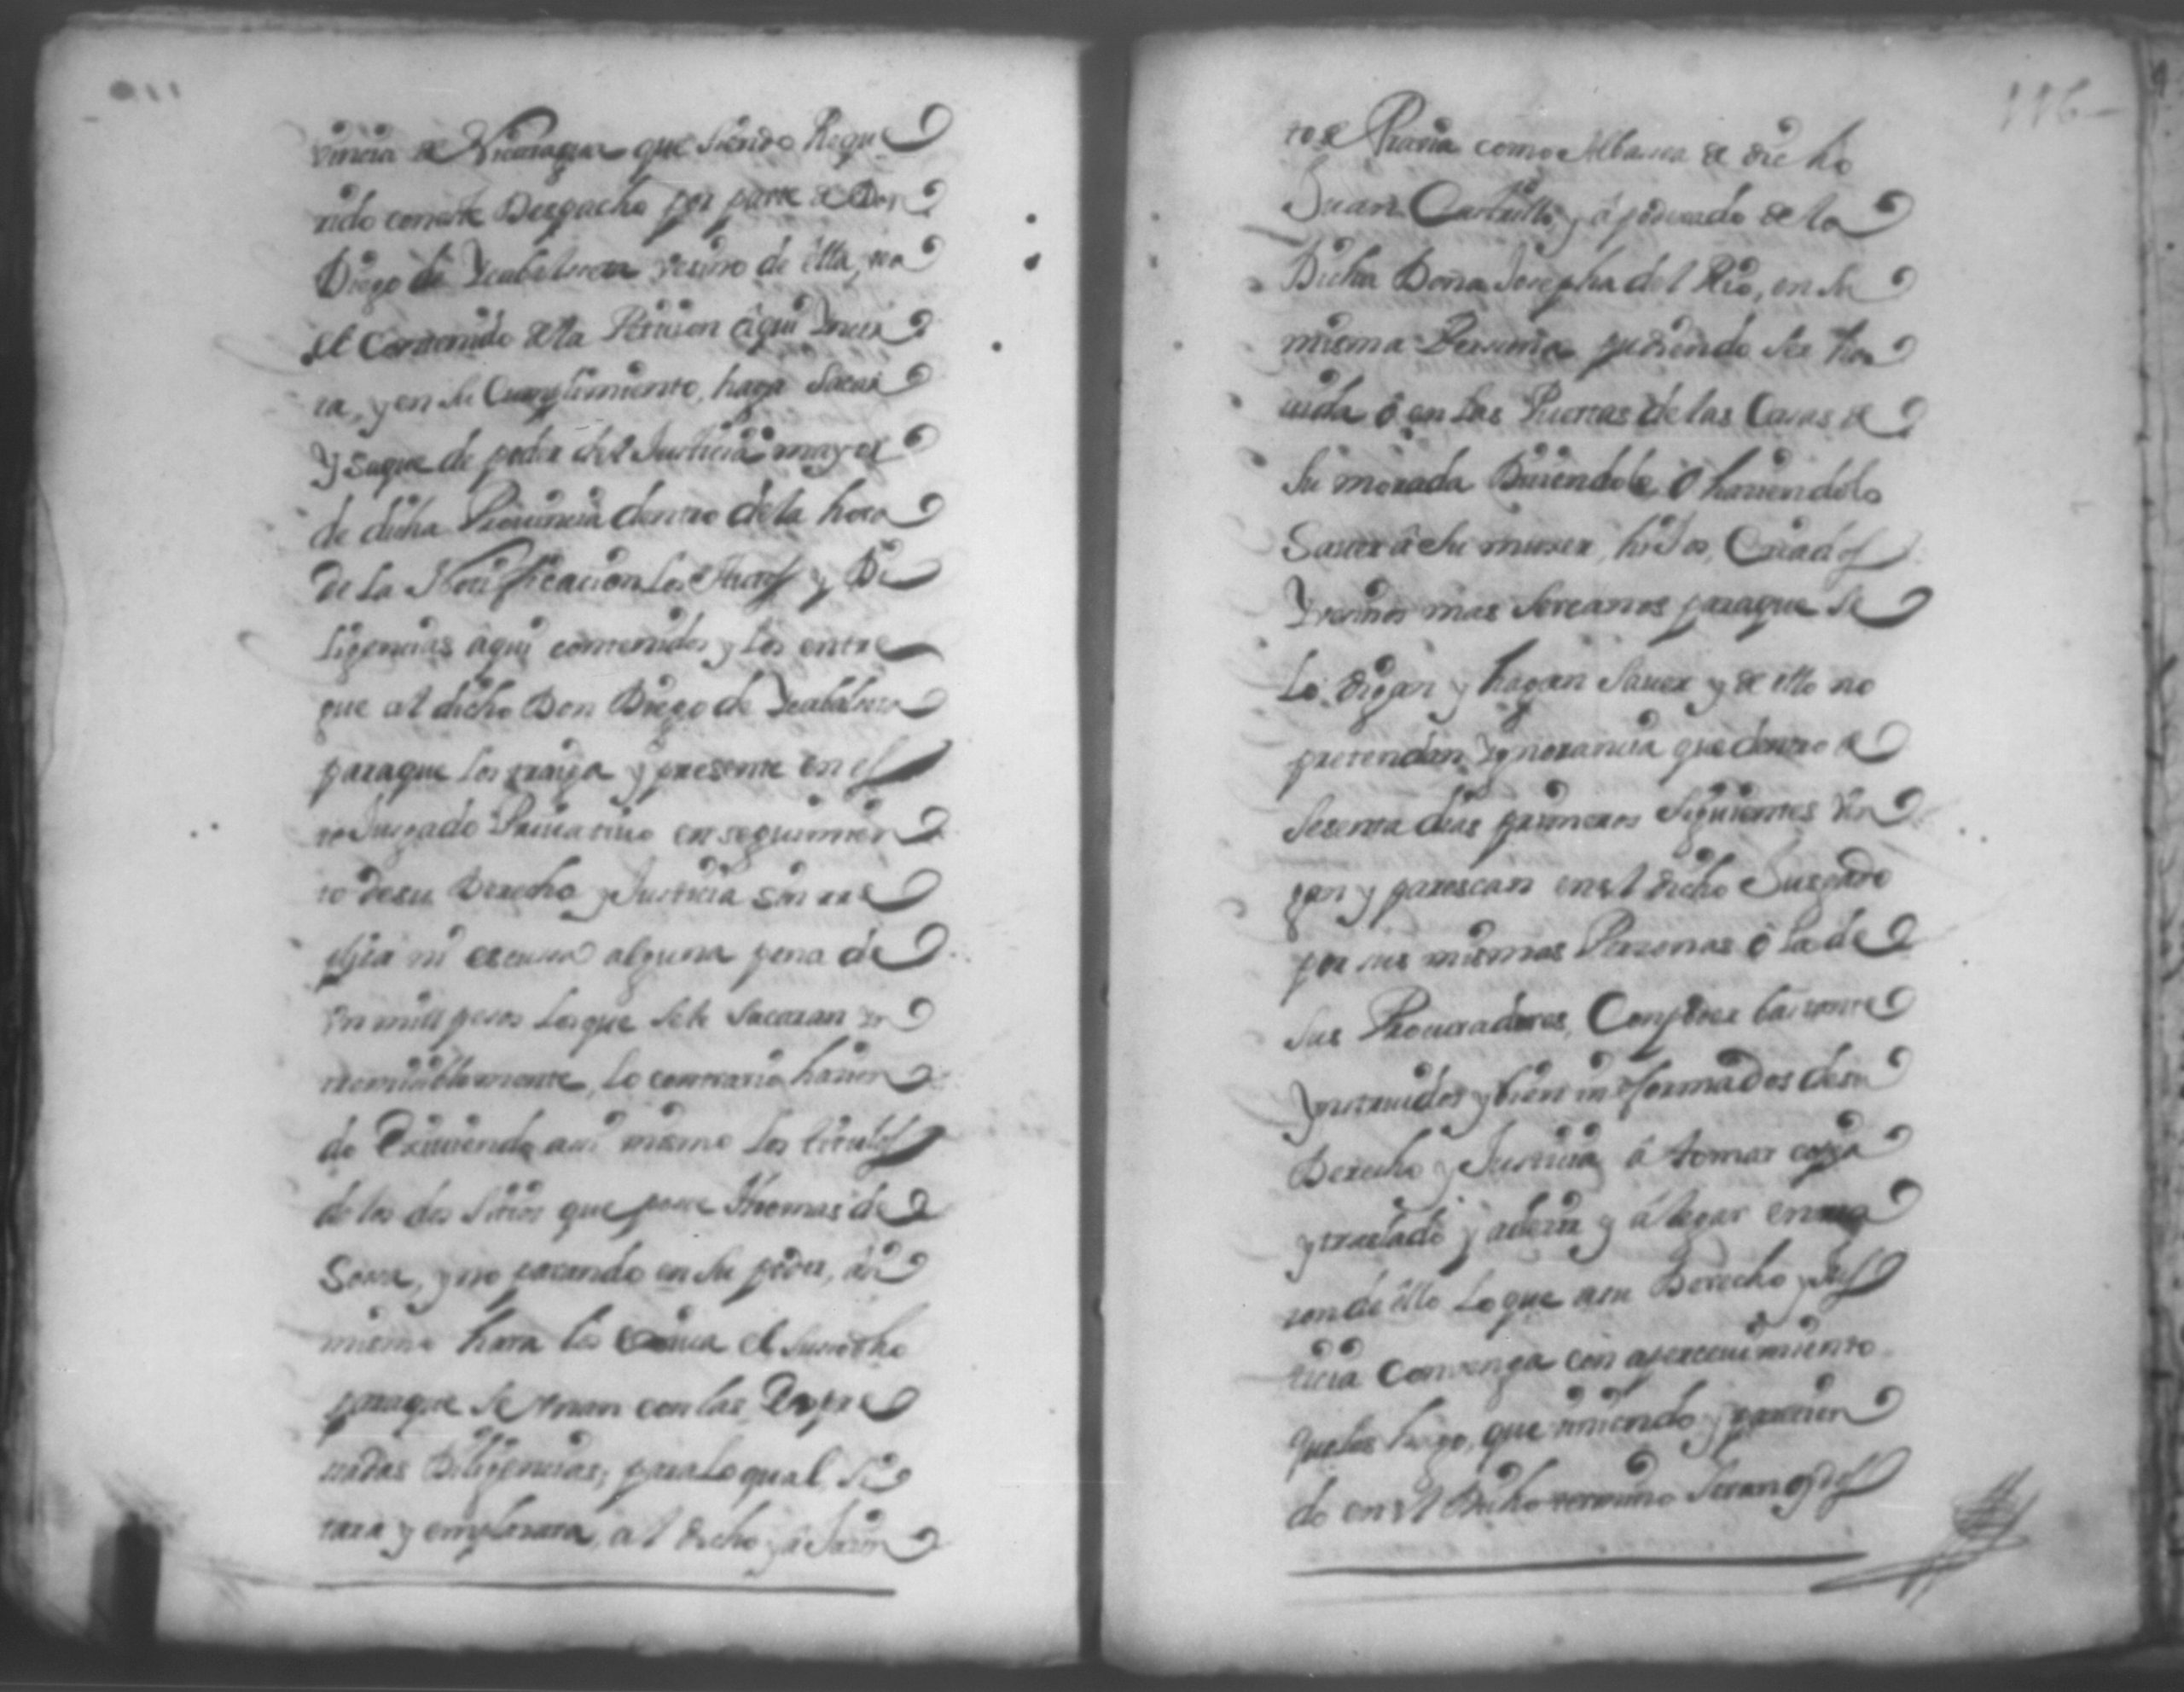 vincia de Nicaragua que siendo Reque
rido con este Despacho por parte de Don
Diego de Ycabalceta vesino de ella, vea
el Contenido de la Peticion aqui Yncer
ta, y en su Cumplimiento, haga sacar
Y saque de poder del Justicia mayor
de dicha Provincia dentro de la hora
de la Notificacion los Autos y Di
ligencias aqui contenidos y los entre
gue al dicho Don Diego de Ycabalceta
para que los traiga y presente en es
te Jusgado Privativo en seguimien
to de su Derecho y Justicia sin re
plica ni escusa alguna pena de
Un mill pesos los que se le sacaran yr
remiciblemente, lo contrario hacien
do Exiviendo assi mismo los titulos
de los dos sitios que posee Thomas de
y no parando en su poder, asi
mismo hara los Exiva el susodho
para que se Vnan con las Expre
sadas Diligencias; para lo qual si
tara y emplasara, al dicho y a
to de como Albasea de dicho
Juan Castrillo y apoderado de la
Dicha Doña Josepha del Rio, en su
misma Persona pudiendo ser hau
uida ô en las Puertas de las Casas de
su morada Diciendolo ô haciendolo
Sauer a su muger, hijos, Criados
Y vesinos mas sercanos para que se
lo digan y hagan sauer y de ello no
pretendan Ygnorancia que dentro de
sesenta dias primeros siguientes Ven
gan y parescan en el dicho Jusgado
por sus mismas Personas ô la de
sus Procuradores, Con poder bastante
Ynstruidos y bien informados de su
Derecho y Justicia â tomar copia
y traslado y a desir y alegar en ra
son de ello lo que a su Derecho y Jus
ticia Convenga con apercevimiento
que les hago, que viniendo y parecien
do en el Dicho termino seran oydos